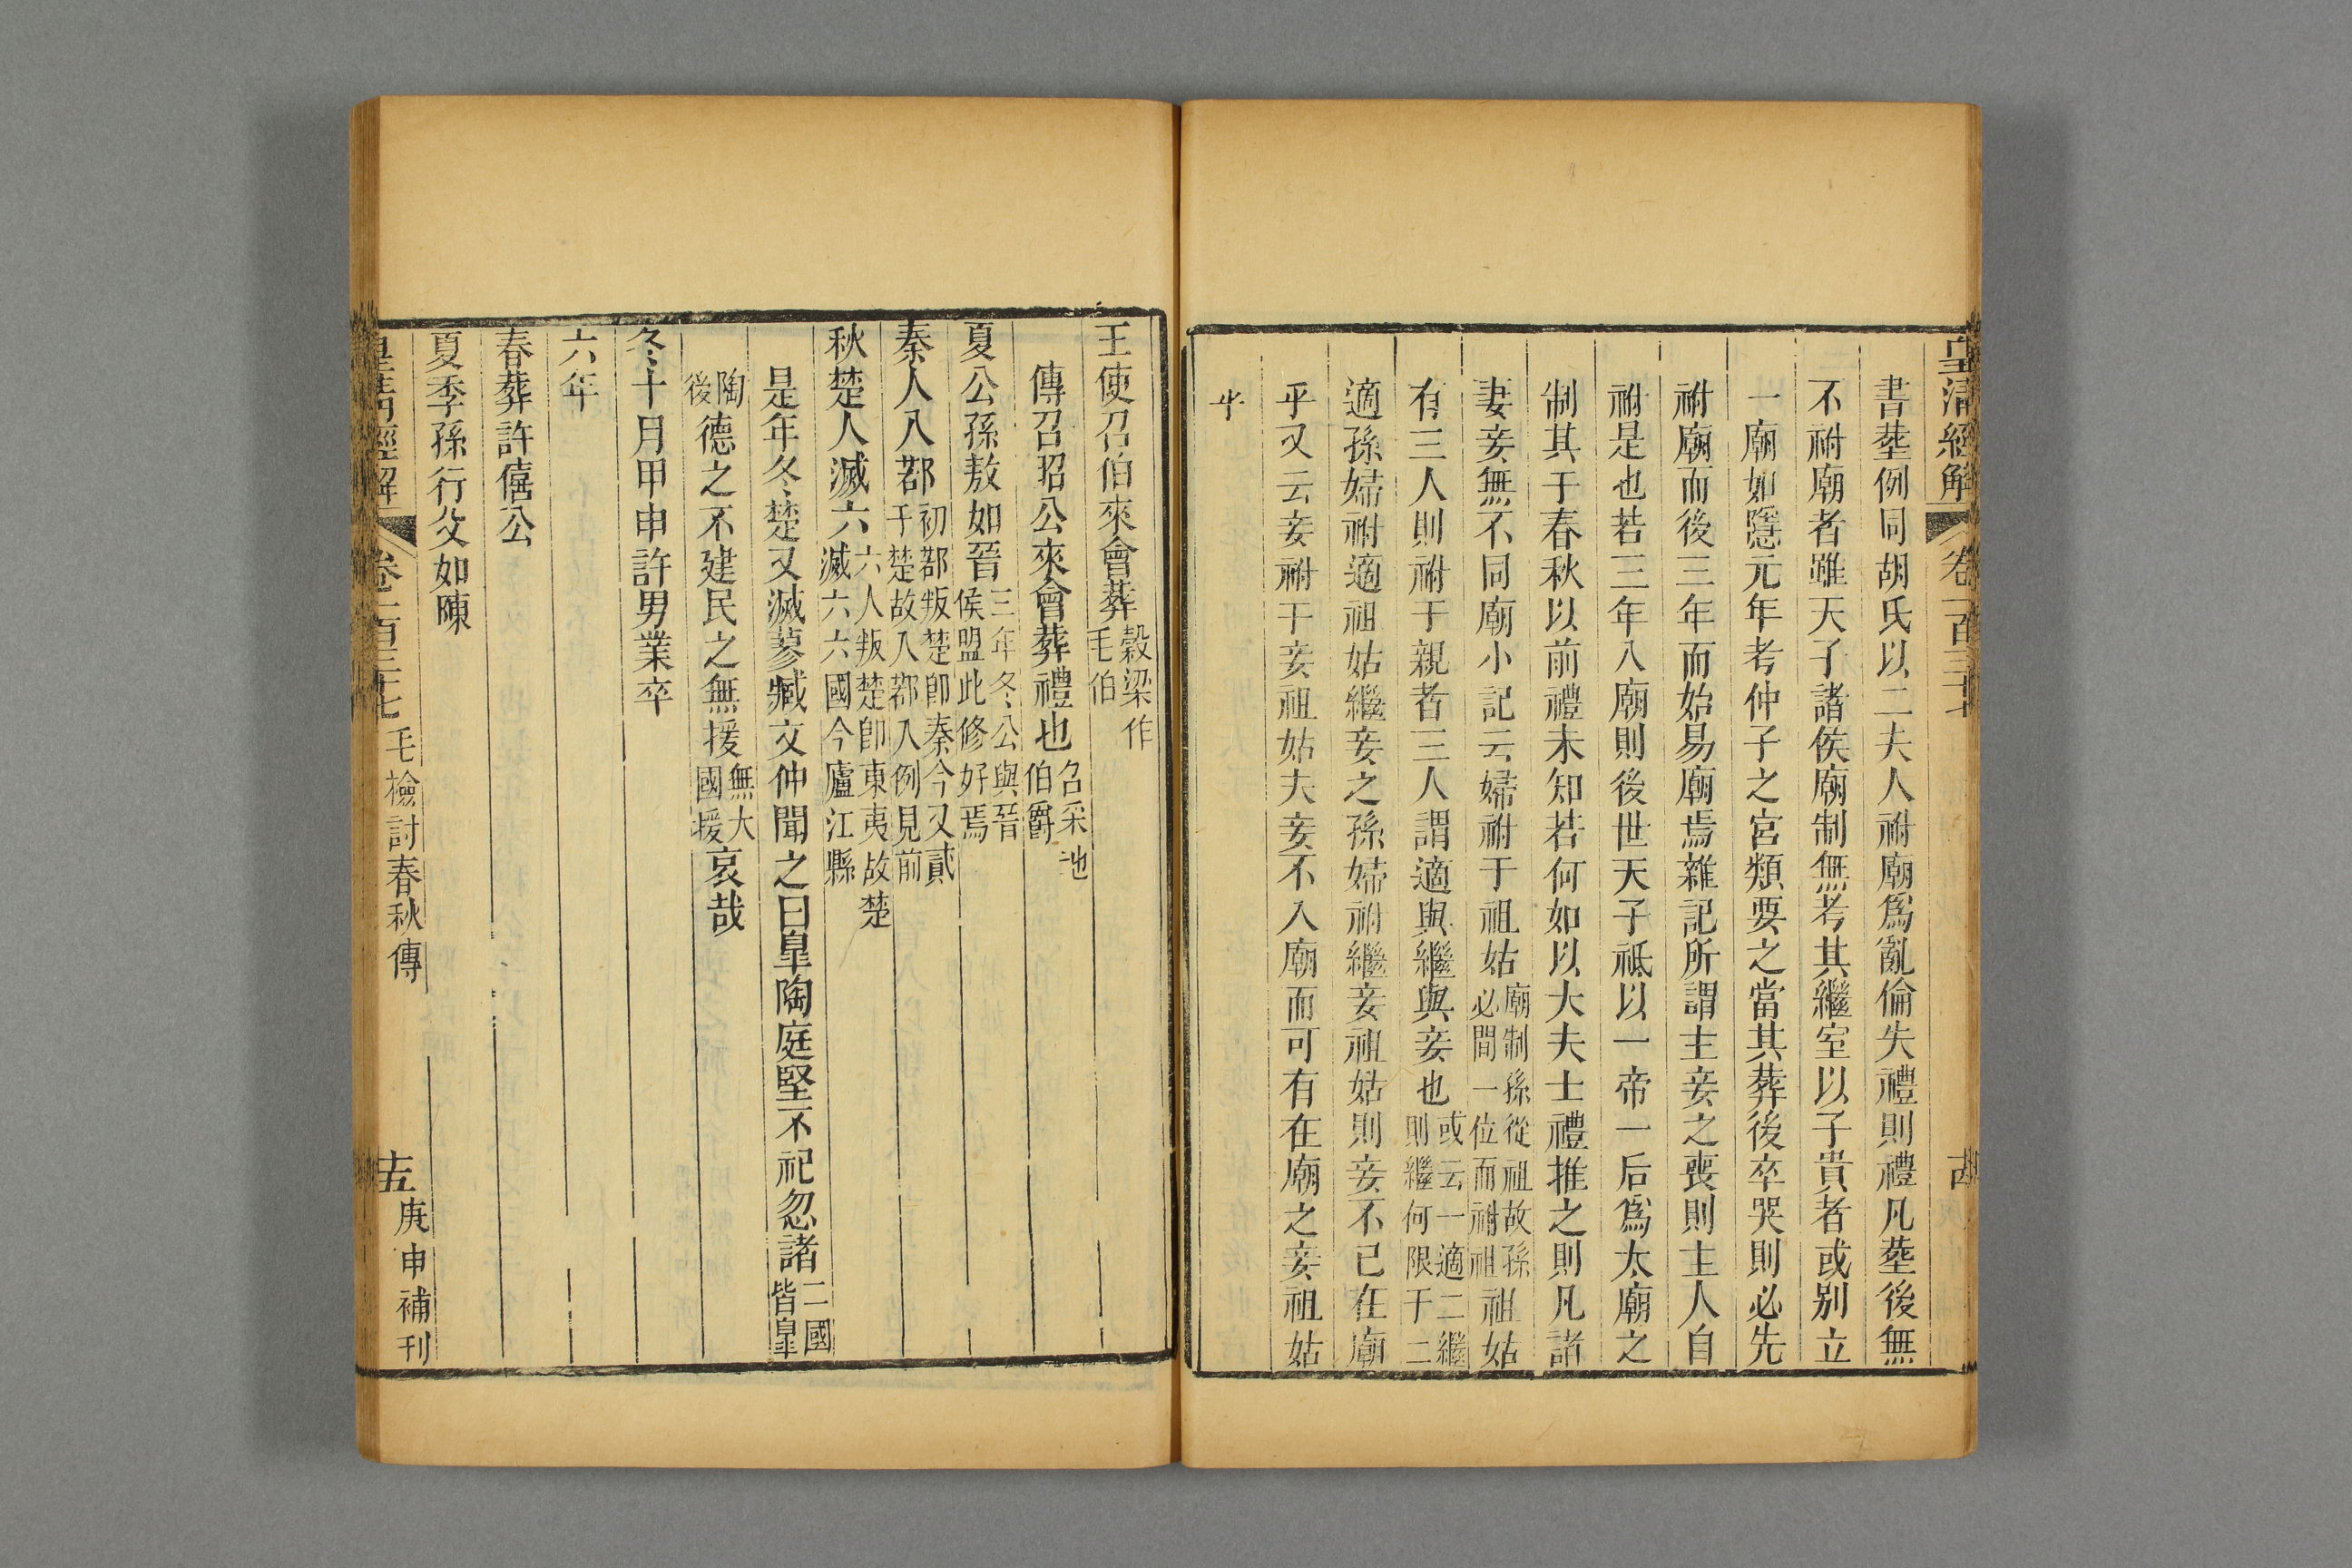 皇清經解 卷一百三十七 十四
書塟例同胡氏以二夫人祔廟爲亂倫失禮則禮凡塟後無
不祔廟者雖天子諸侯廟制無考其繼室以子貴者或别立
一廟如隱元年考仲子之宮類要之當其葬後卒哭則必先
祔廟而後三年而始易廟焉雜記所謂主妾之喪則主人自
祔是也若三年入廟則後世天子祗以一帝一后爲太廟之
制其于春秋以前禮未知若何如以大夫士禮推之則凡諸
妻妾無不同廟小記云婦祔于祖姑廟制孫從祖故孫必間一位而祔祖祖姑
有三人則祔于親者三人謂適與繼與妾也或云一適二繼則繼何限于二
適孫婦祔適祖姑繼妾之孫婦祔繼妾祖姑則妾不已在廟
乎又云妾祔于妾祖姑夫妾不入廟而可有在廟之妾祖姑
乎
王使召伯來會葬穀梁作毛伯
傳召昭公來會葬禮也召采地伯爵
夏公孫敖如晉三年冬公與晉侯盟此修好焉
秦人入鄀初鄀叛楚卽秦今又貳于楚故入鄀入例見前
秋楚人滅六六人叛楚卽東夷故楚滅六六國今廬江縣
是年冬楚又滅蓼臧文仲聞之曰皐陶庭堅不祀忽諸二國皆皐
陶後德之不建民之無援無大國援哀哉
冬十月甲申許男業卒
六年
春葬許僖公
夏季孫行父如陳
皇清經解 卷一百三十七 毛檢討春秋傳 十五 庚申補刊